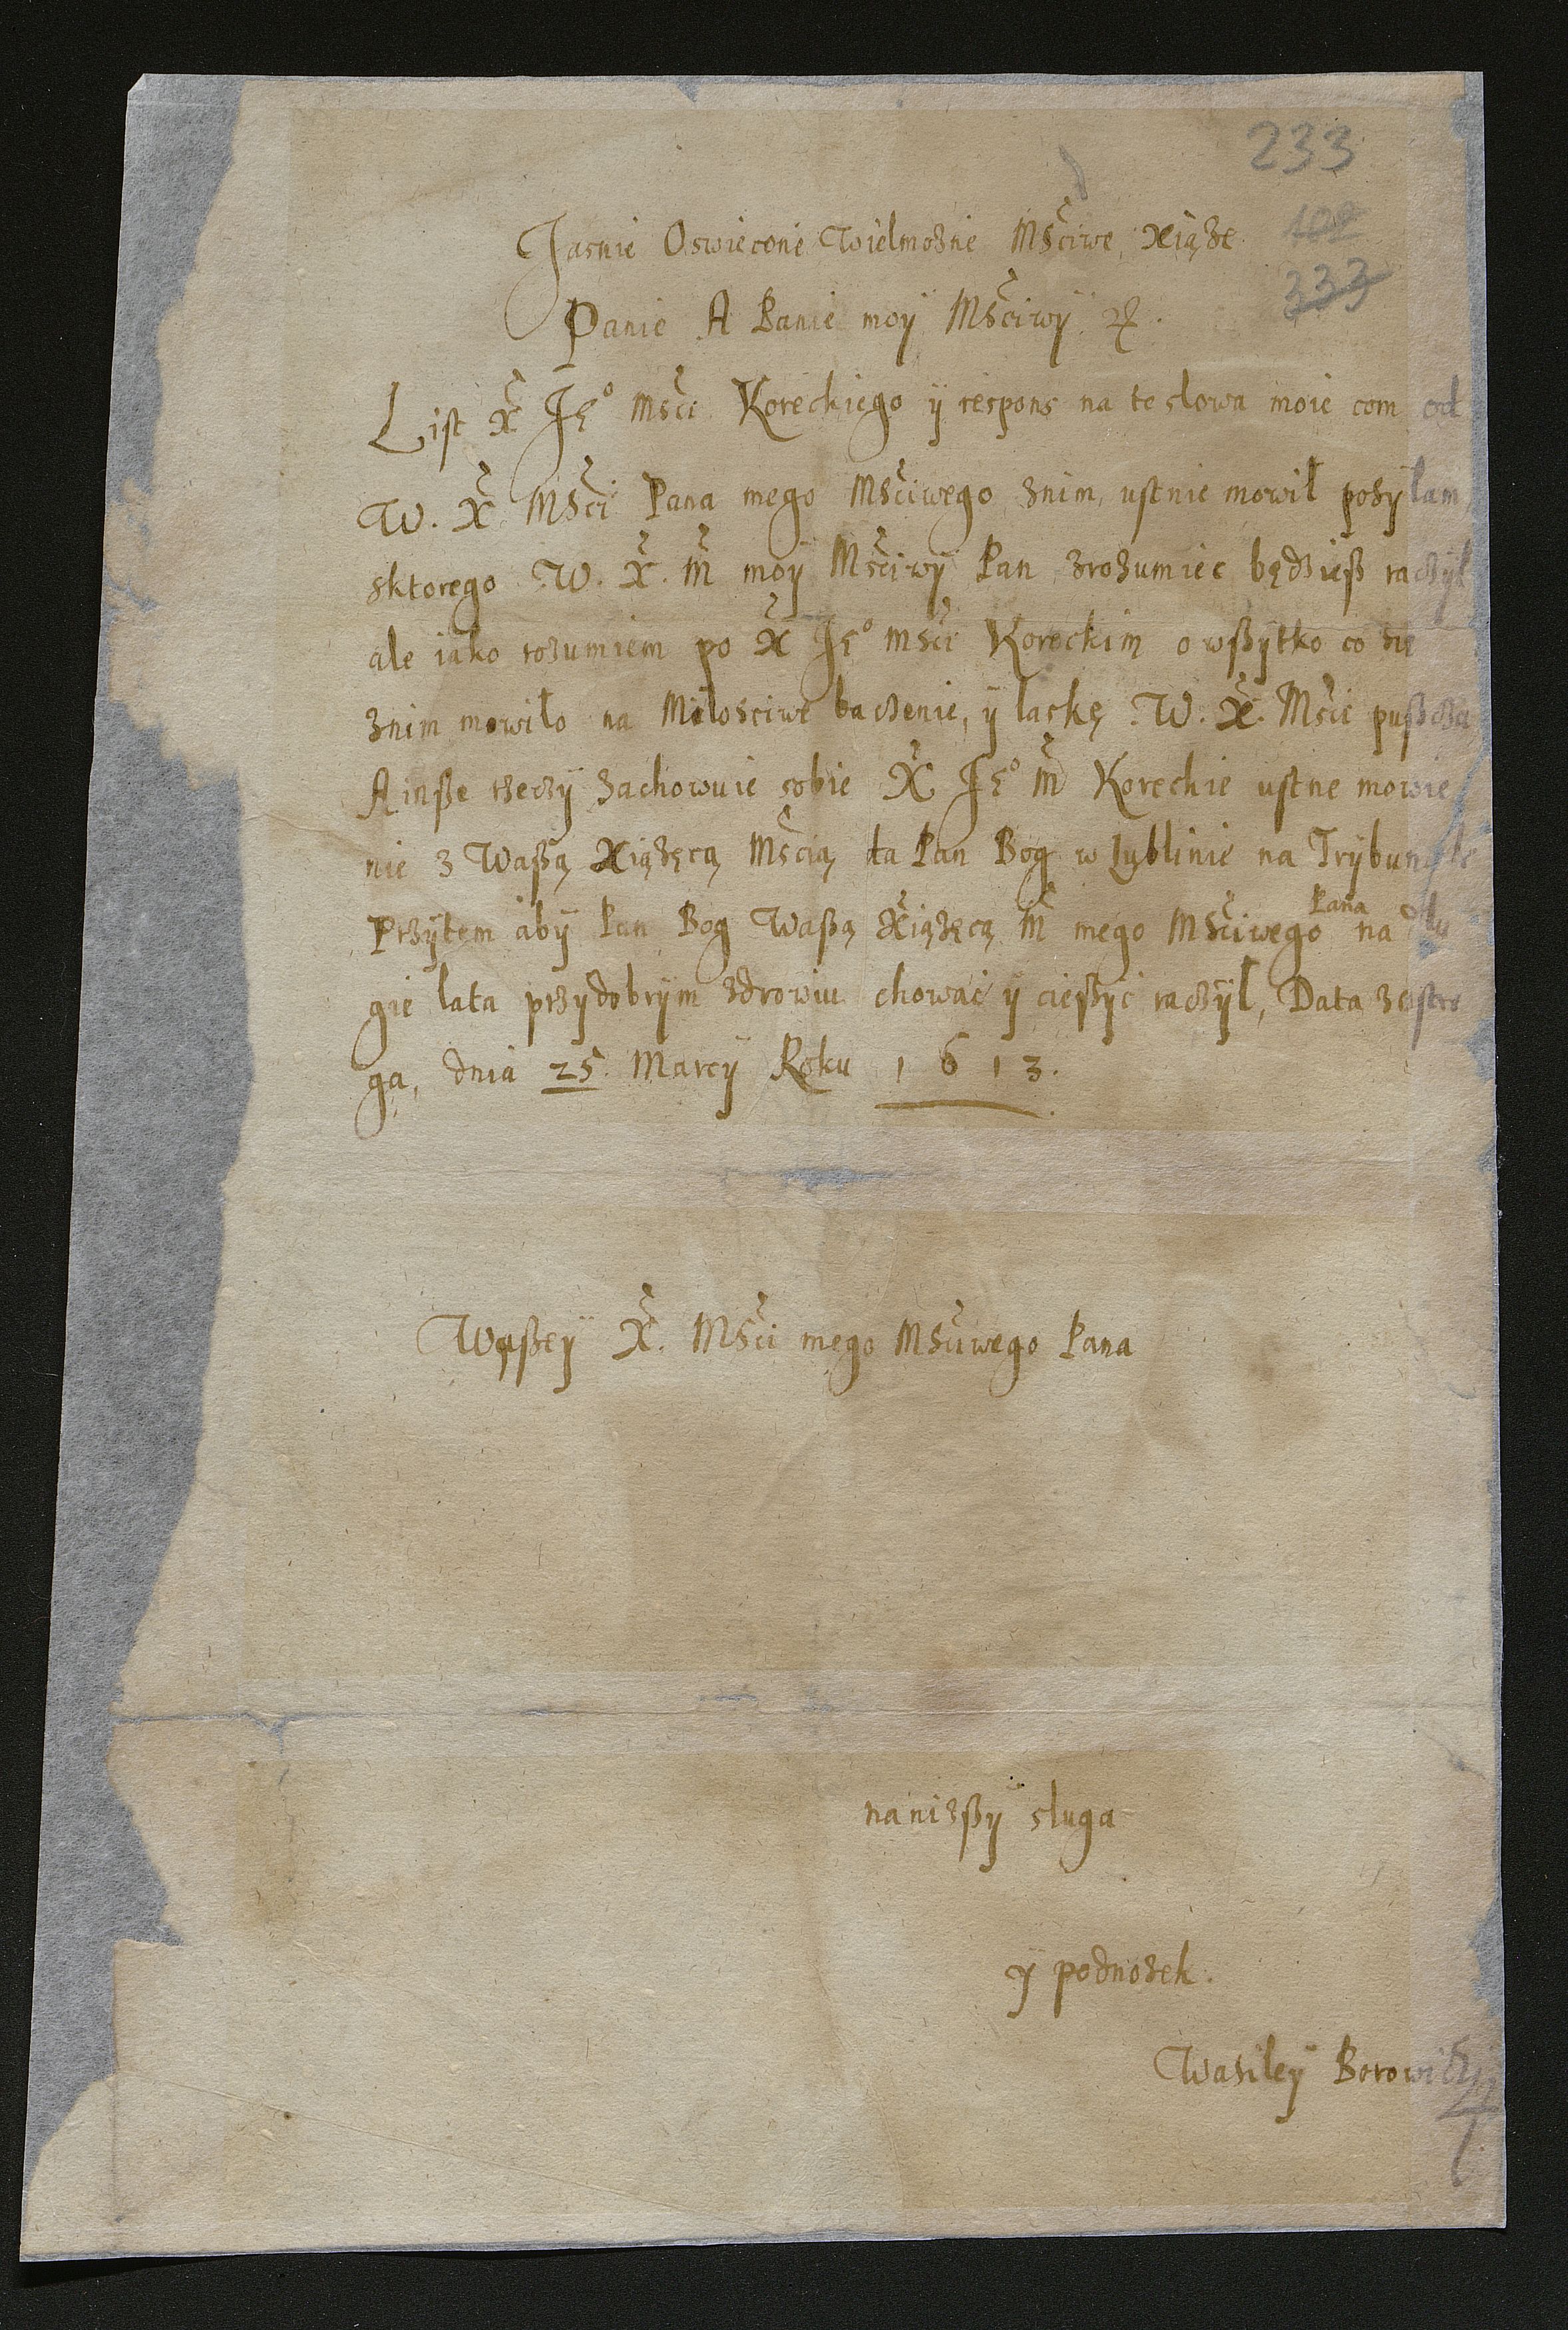 233
Jasnie Oswiecone Wielmożnie Msciwe Xiąże
333
Panie A Panie moÿ Msciwÿ etc.
List X Je° Msci Koreckiego ÿ respons na te slowa moie com od
W. X. Msci Pana mego Msciwego znim, ustnie mowił posÿłam
sktorego W. X. M moÿ Msciwÿ Pan zrozumiec będzieß raczÿł
ale iako rozumiem po X Je° Msci Koreckim o wßÿtko co się
znim mowiło na Miłosciwe baczenie, ÿ laskę W. X. Msci pußcza
A inße rzeczÿ zachowuie sobie X Je° M Koreckie ustne mowie
nie z Waßą Xiążęcą Mscią da Pan Bog w Lublinie na Trÿbunale
Przÿtem abÿ Pan Bog Waßą Xiążęcą M mego Msciwego Pana na dłu
gie lata przÿdobrÿm zdrowiu chować ÿ cießÿć raczÿł, Data zostro
ga, dnia 25 Marcÿ Roku 1613.
Waßeÿ X. Msci mego Msciwego Pana
naniżßÿ sługa
ÿ podnożek.
Wasileÿ Borowicky